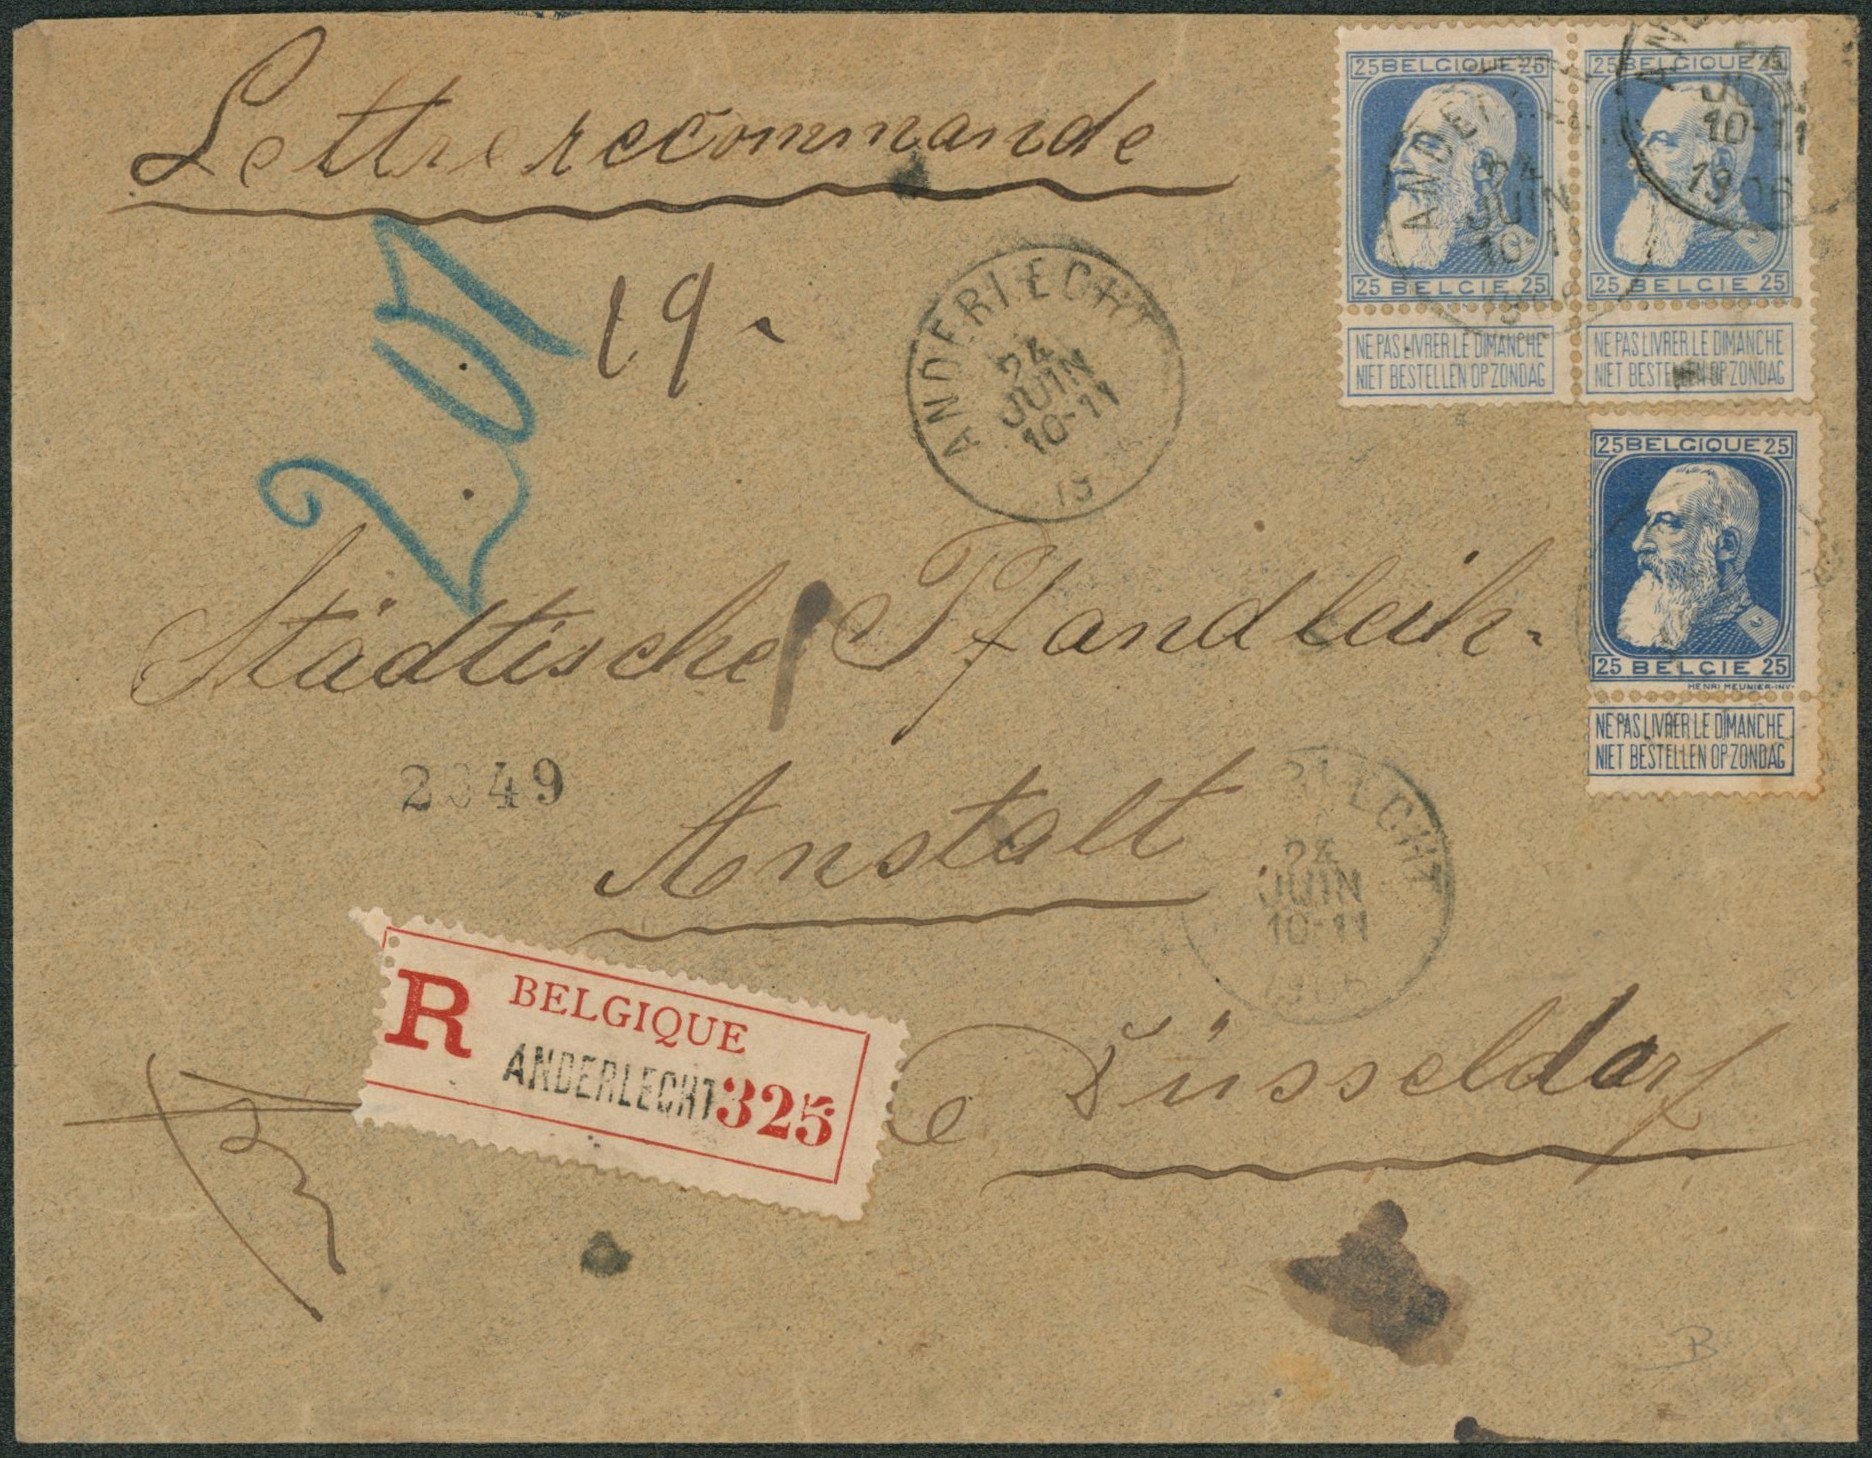 Lettre recommande
25 BELGIQUE 25
25 BELGIE 25
NE PAS LIVRER LE DIMANCHE
NIET BESTELLEN OP ZONDAG
25 BELGIQUE 25
25 BELGIE 25
NE PAS LIVRER LE DIMANCHE
NIET BESTELLEN OP ZONDAG
24
JUIN
10-11
1906
24
JUIN
19.
ANDERLECHT
24
JUIN
10-11
25 BELGIQUE 25
25 BELGIE 25
HENRI MEUNIER-INV-
NE PAS LIVRER LE DIMANCHE
NIET BESTELLEN OP ZONDAG
Städtische Pfandleih-
Anstalt
24
JUIN
10-11
R BELGIQUE
ANDERLECHT 325
Düsseldorf
B